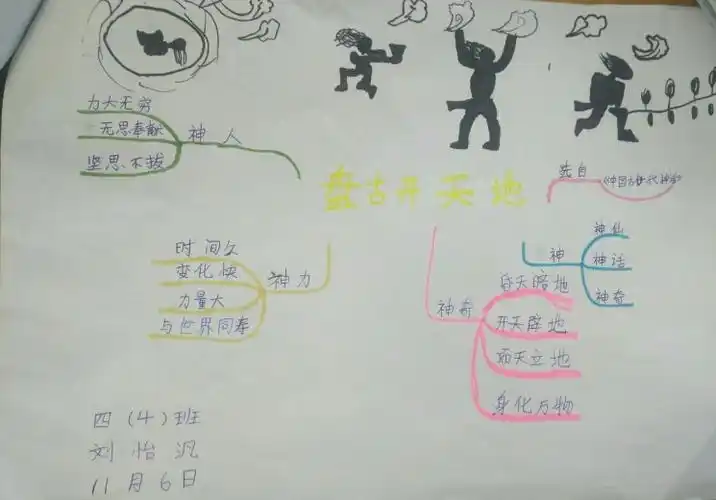 力大无穷
无思奉献
坚思不拔
神人
盘古开天地
选自
《中国古代神话》
时间久
变化快
力量大
与世界同寿
神力
神
神仙
神话
神奇
神奇
昏天暗地
开天辟地
顶天立地
身化万物
四(4)班
刘怡汎
11月6日